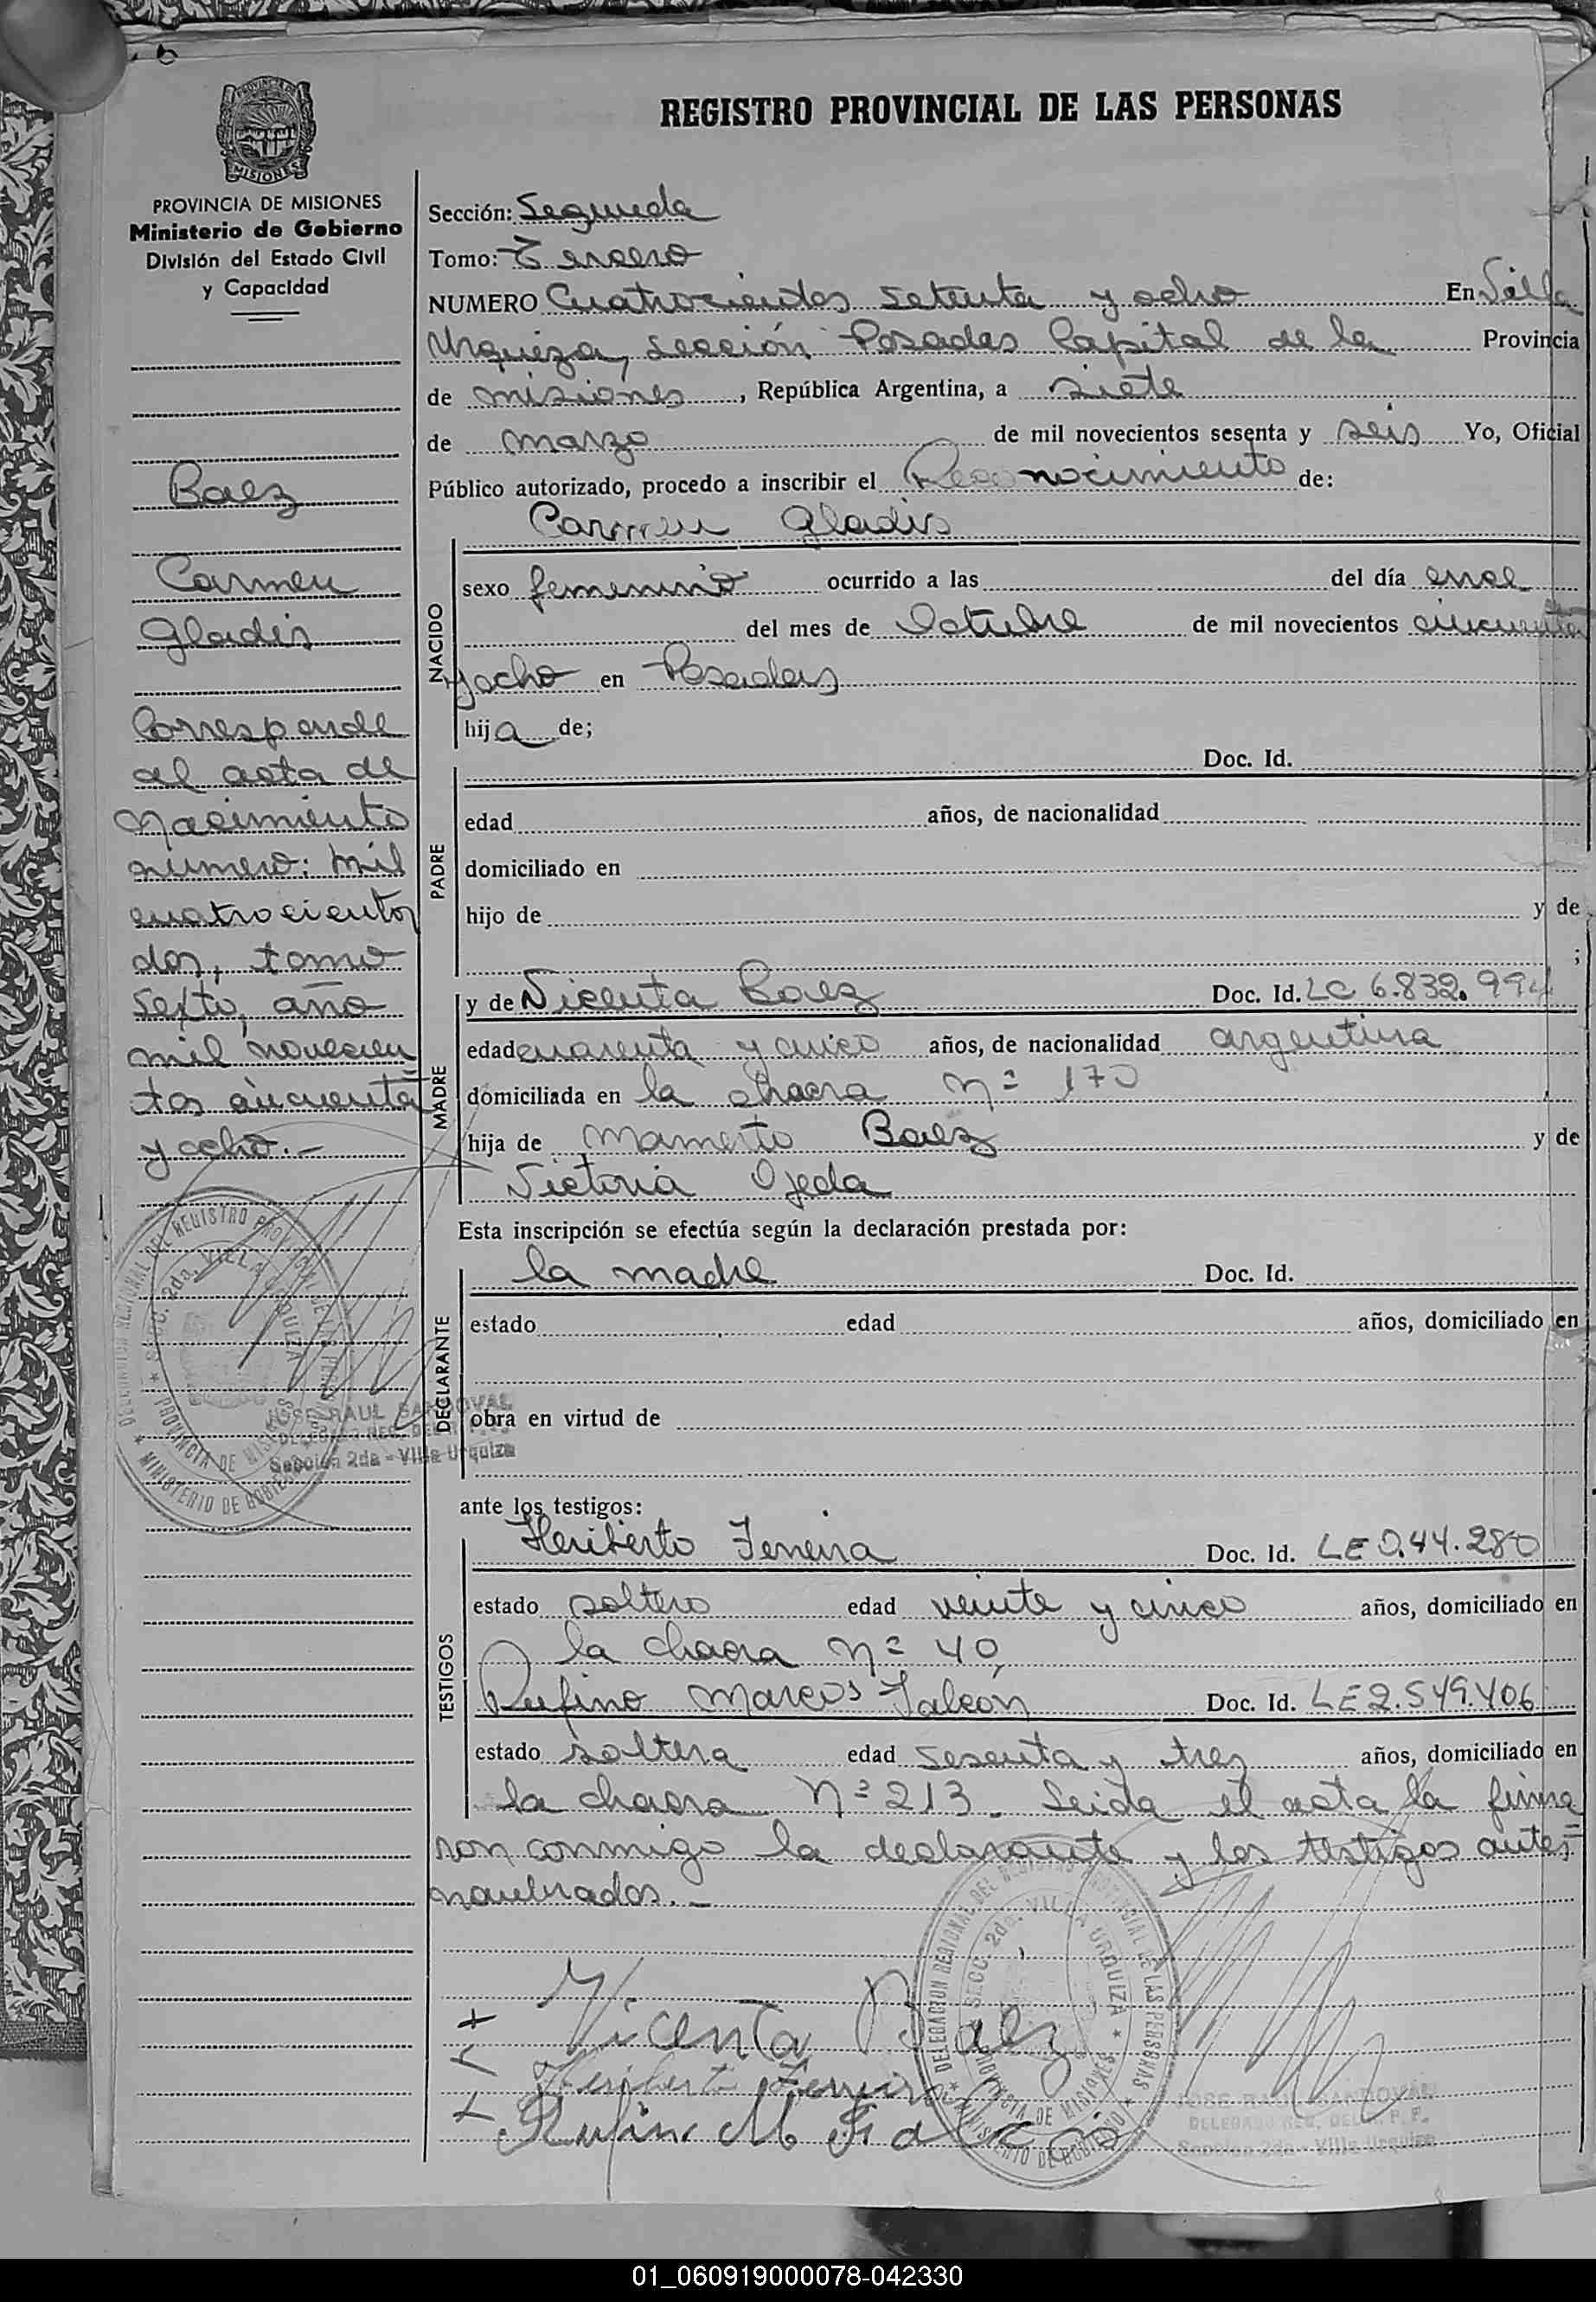 REGISTRO PROVINCIAL DE LAS PERSONAS
MISIONES
PROVINCIA DE MISIONES
Ministerio de Gobierno
División del Estado Civil
y Capacidad
Baez
Carmen
Gladis
Corresponde
al acta de
Nacimiento
numero: mil
cuatrocientos
dos, tomo
sexto, año
mil novecien
tos cincuenta
y ocho.-
DELEGACION REGIONAL DEL REGISTRO PROVINCIAL DE LAS PERSONAS
SECC. 2da. VILLA URQUIZA
PROVINCIA DE MISIONES
MINISTERIO DE GOBIERNO
JOSE RAUL SANDOVAL
DELEGADO REG. DEL R. P. P.
Sección 2da - Villa Urquiza
Sección: Segunda
Tomo: Tercero
NUMERO Cuatrocientos setenta y ocho En Villa
Urquiza, sección Posadas Capital de la Provincia
de misiones, República Argentina, a siete
de marzo de mil novecientos sesenta y seis Yo, Oficial
Público autorizado, procedo a inscribir el Reconocimiento de:
Carmen Gladis
NACIDO
sexo femenino ocurrido a las del día
del mes de Octubre de mil novecientos cincuenta
y ocho en Posadas
hija de;
PADRE
Doc. Id.
edad años, de nacionalidad
domiciliado en
hijo de y de
;
MADRE
y de Vicenta Baez Doc. Id. LC 6.832.994
edad cuarenta y cinco años, de nacionalidad argentina
domiciliada en la chacra nº 170
hija de Mamerto Baez y de
Victoria Ojeda
Esta inscripción se efectúa según la declaración prestada por:
DECLARANTE
la madre Doc. Id.
estado edad años, domiciliado en
obra en virtud de
ante los testigos:
TESTIGOS
Heriberto Ferreira Doc. Id. LE
estado soltero edad veinte y cinco años, domiciliado en
la chacra nº 40
Rufino Marcos Falcón Doc. Id. LE 2.549.406
estado soltera edad sesenta y tres años, domiciliado en
la chacra Nº 213. Leida el acta la firma
ron conmigo la declarante y los testigos antes
nombrados.-
Vicenta Baez
Heriberto Ferreira
Rufino M Falcon
DELEGACION REGIONAL DEL REGISTRO PROVINCIAL DE LAS PERSONAS
SECC. 2da. VILLA URQUIZA
PROVINCIA DE MISIONES
MINISTERIO DE GOBIERNO
JOSE RAUL SANDOVAL
DELEGADO REG. DEL R. P. P.
Sección 2da - Villa Urquiza
01_060919000078-042330